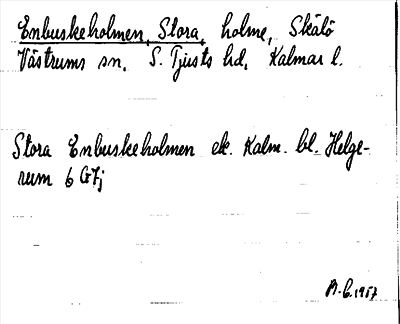 Enbuskeholmen, Stora, holme, Skälö
Västrums sn. S. Tjusts hd. Kalmar l.
Stora Enbuskeholmen ek. Kalm. bl. Helge-
rum 6 G7j
B.G. 1957